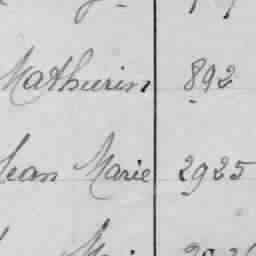 Mathurin 892
Jean Marie 2925